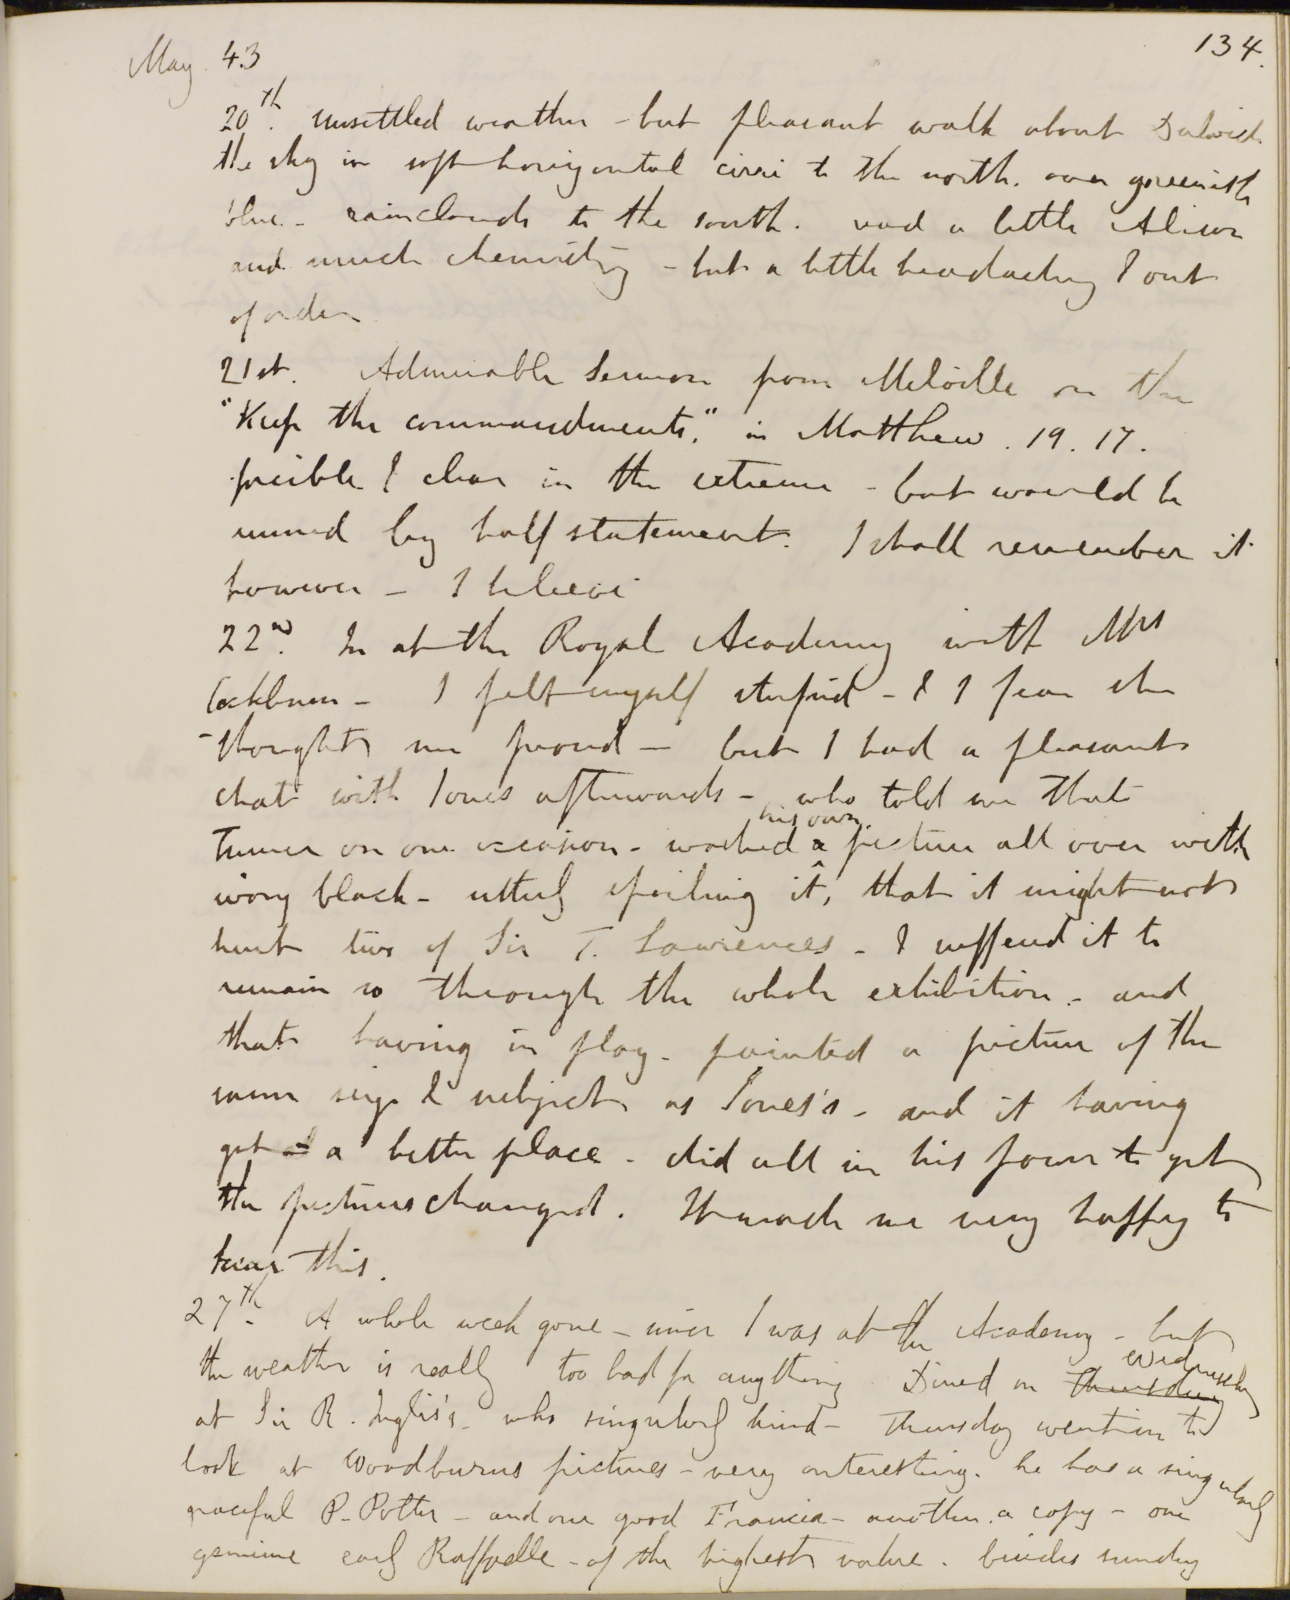 May 43
134.
20th. Unsettled weather - but pleasant walk about Dulwich
the sky in soft horizontal cirri to the north. over greenish
blue - rainclouds to the south. read a little Alison
and much chemistry - but a little headachey & out
of order
21st. Admirable sermon from Melville on the
"Keep the commandments," in Matthew. 19. 17.
forcible & clear in the extreme - but would be
ruined by half statement. I shall remember it
however - I believe
22nd. In at the Royal Academy with Mrs
Cockburn - I felt myself stupid - & I fear she
thought me proud - but I had a pleasant
chat with Jones afterwards - who told me that
his own
Turner on one occasion - washed a picture all over with
ivory black - utterly spoiling it, that it might not
hurt two of Sir T. Lawrences - & suffered it to
remain so through the whole exhibition - and
that having in play - painted a picture of the
same size & subject as Jones's - and it having
got a better place - did all in his power to get
the pictures changed. It made me very happy to
hear this.
27th. A whole week gone - since I was at the Academy - but
the weather is really too bad for anything Dined on Thursday Wednesday
at Sir R. Inglis's - who singularly kind - Thursday went in to
look at Woodburns pictures - very interesting. he has a singularly
graceful P. Potter - and one good Francia - another. a copy - one
genuine early Raffaelle - of the highest value. besides sundry